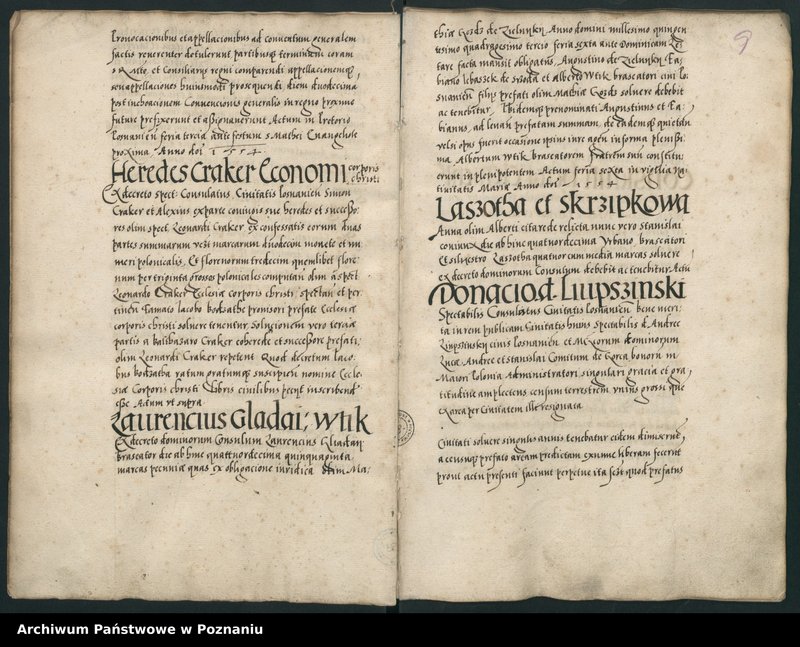 Provocacionibus et appellacionibus ad conventum generalem
factis reverenter detulerunt partibusq terminum coram
S Rmte. et Consiliariis regni comparendi appellacionemq
seu appellaciones huiusmodi prosequendi, diem duodecima
post inchoacionem Convencionis generalis in regno proxime
future prefixerunt et assignaverunt Actum in Pretorio
Posnanien feria tercia ante festum S Mathei Evangeliste
proxima Anno dni 1554
Heredes Craker Economi corporis
christi
Ex decreto spect: Consulatus Civitatis Posnanien Simon
Craker et Alexius ex parte coniugis sue heredes et successo:
res olim spect. Leonardi Craker ex confessatis eorum duas
partes summarum vcz marcarum duodecim monete et nu
meri polonicalis, Et florenorum tredecim quemlibet flore:
num per triginta grossos polonicales computan olim a spect
Leonardo Craker Ecclesie corporis christi spectan et per
tinen famato Jacobo kodzatha provisori prefate Ecclesie
corporis christi solvere tenentur, Solucionem vero tercie
partis a baltazaro Craker coherede et successore prefati
olim Leonardi Craker repetent Quod decretum Jaco:
bus kodzatha ratum gratumq suscipien nomine Eccle:
sie Corporis christi Libris civilibus petyt inscribend
esse Actum ut supra
Laurencius Gladai; Wtik
Ex decreto dominorum Consulum Laurencius Gladai
braseator die ab hinc quattuordecima quinquaginta
marcas pecunie quas ex obligacione iuridica olim Ma:
9
thie Gozds de Zielniky Anno domini millesimo quingen
tesimo quadragesimo tercio feria sexta ante Dominicam Le
tare facta mansit obligatus, Augustino de Zielniky Fa
biano lebaszek de Srzoda et Alberto Wtik brasiatori civi Po
snanien filijs prefati olim Mathie Gozds solvere debebit
ac tenebitur. Ibidemq prenominati Augustinus et Fa:
bianus, ad levan prefatam summam, de eademq quietan
vel si opus fuerit occasione ipsius iure agen in forma plenissi:
ma Albertum Wtik braseatorem fratrem sui constitu
erunt in plenipotentem Actum feria sexta in vigilia Na
tivitatis Marie Anno dni 1554
Laszotha et skrzipkowa
Anna olim Alberti citarede relicta nunc vero stanislai
coniunx die ab hinc quatuordecima Urbano braseatori
Et silvestro Laszotha quatuor cum media marcas solvere
ex decreto dominorum Consulum debebit ac tenebitur Actu
Donacio d. Liupszinski
Spectabilis Consulatus Civitatis Posnanien bene meri:
ta in rem publicam Civitatis huius spectabilis d. Andree
Liupssinsky civis Posnanien et M dominorum
Luce Andree et stanislai Comitum de Gorca bonorum in
Maiori Polonia Administratori singulari gracia et gra
titudine amplectens censum terrestrem unius grossi que
ex area per Civitatem ille resignata

Civitati solvere singulis annis tenebatur eidem dimserut,
a censuq prefato aream predictam exinne liberam fecerut
prout actu presenti faciunt perpetue ita scilt quod prefatus
Archiwum Państwowe w Poznaniu